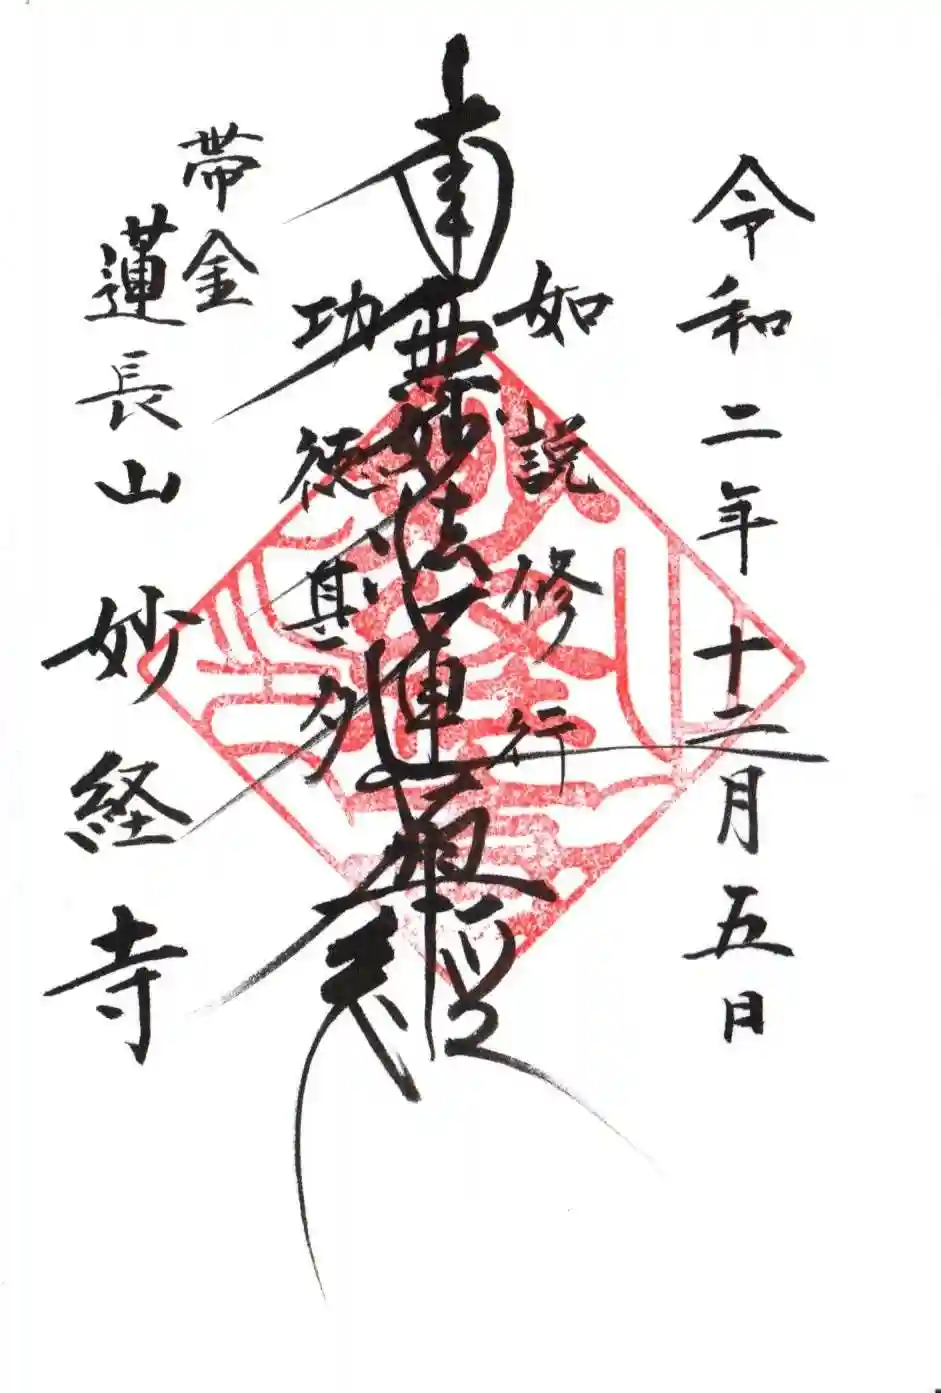 令和二年十二月五日
如説修行
南無妙法蓮華経
功徳甚多
帯金
蓮長山 妙経寺